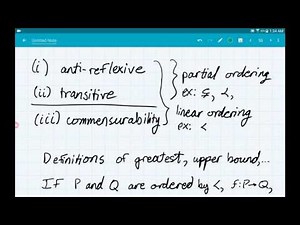 (i) anti-reflexive
(ii) transitive
(iii) commensurability
partial ordering
ex: ⊊, <,
linear ordering
ex: <
Definitions of greatest, upper bound,...
If P and Q are ordered by <, f:P→Q,